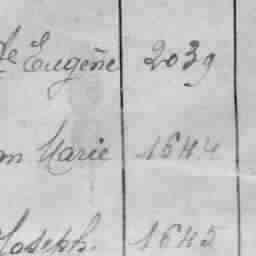 Eugène 2039
Marie 1644
Joseph. 1645